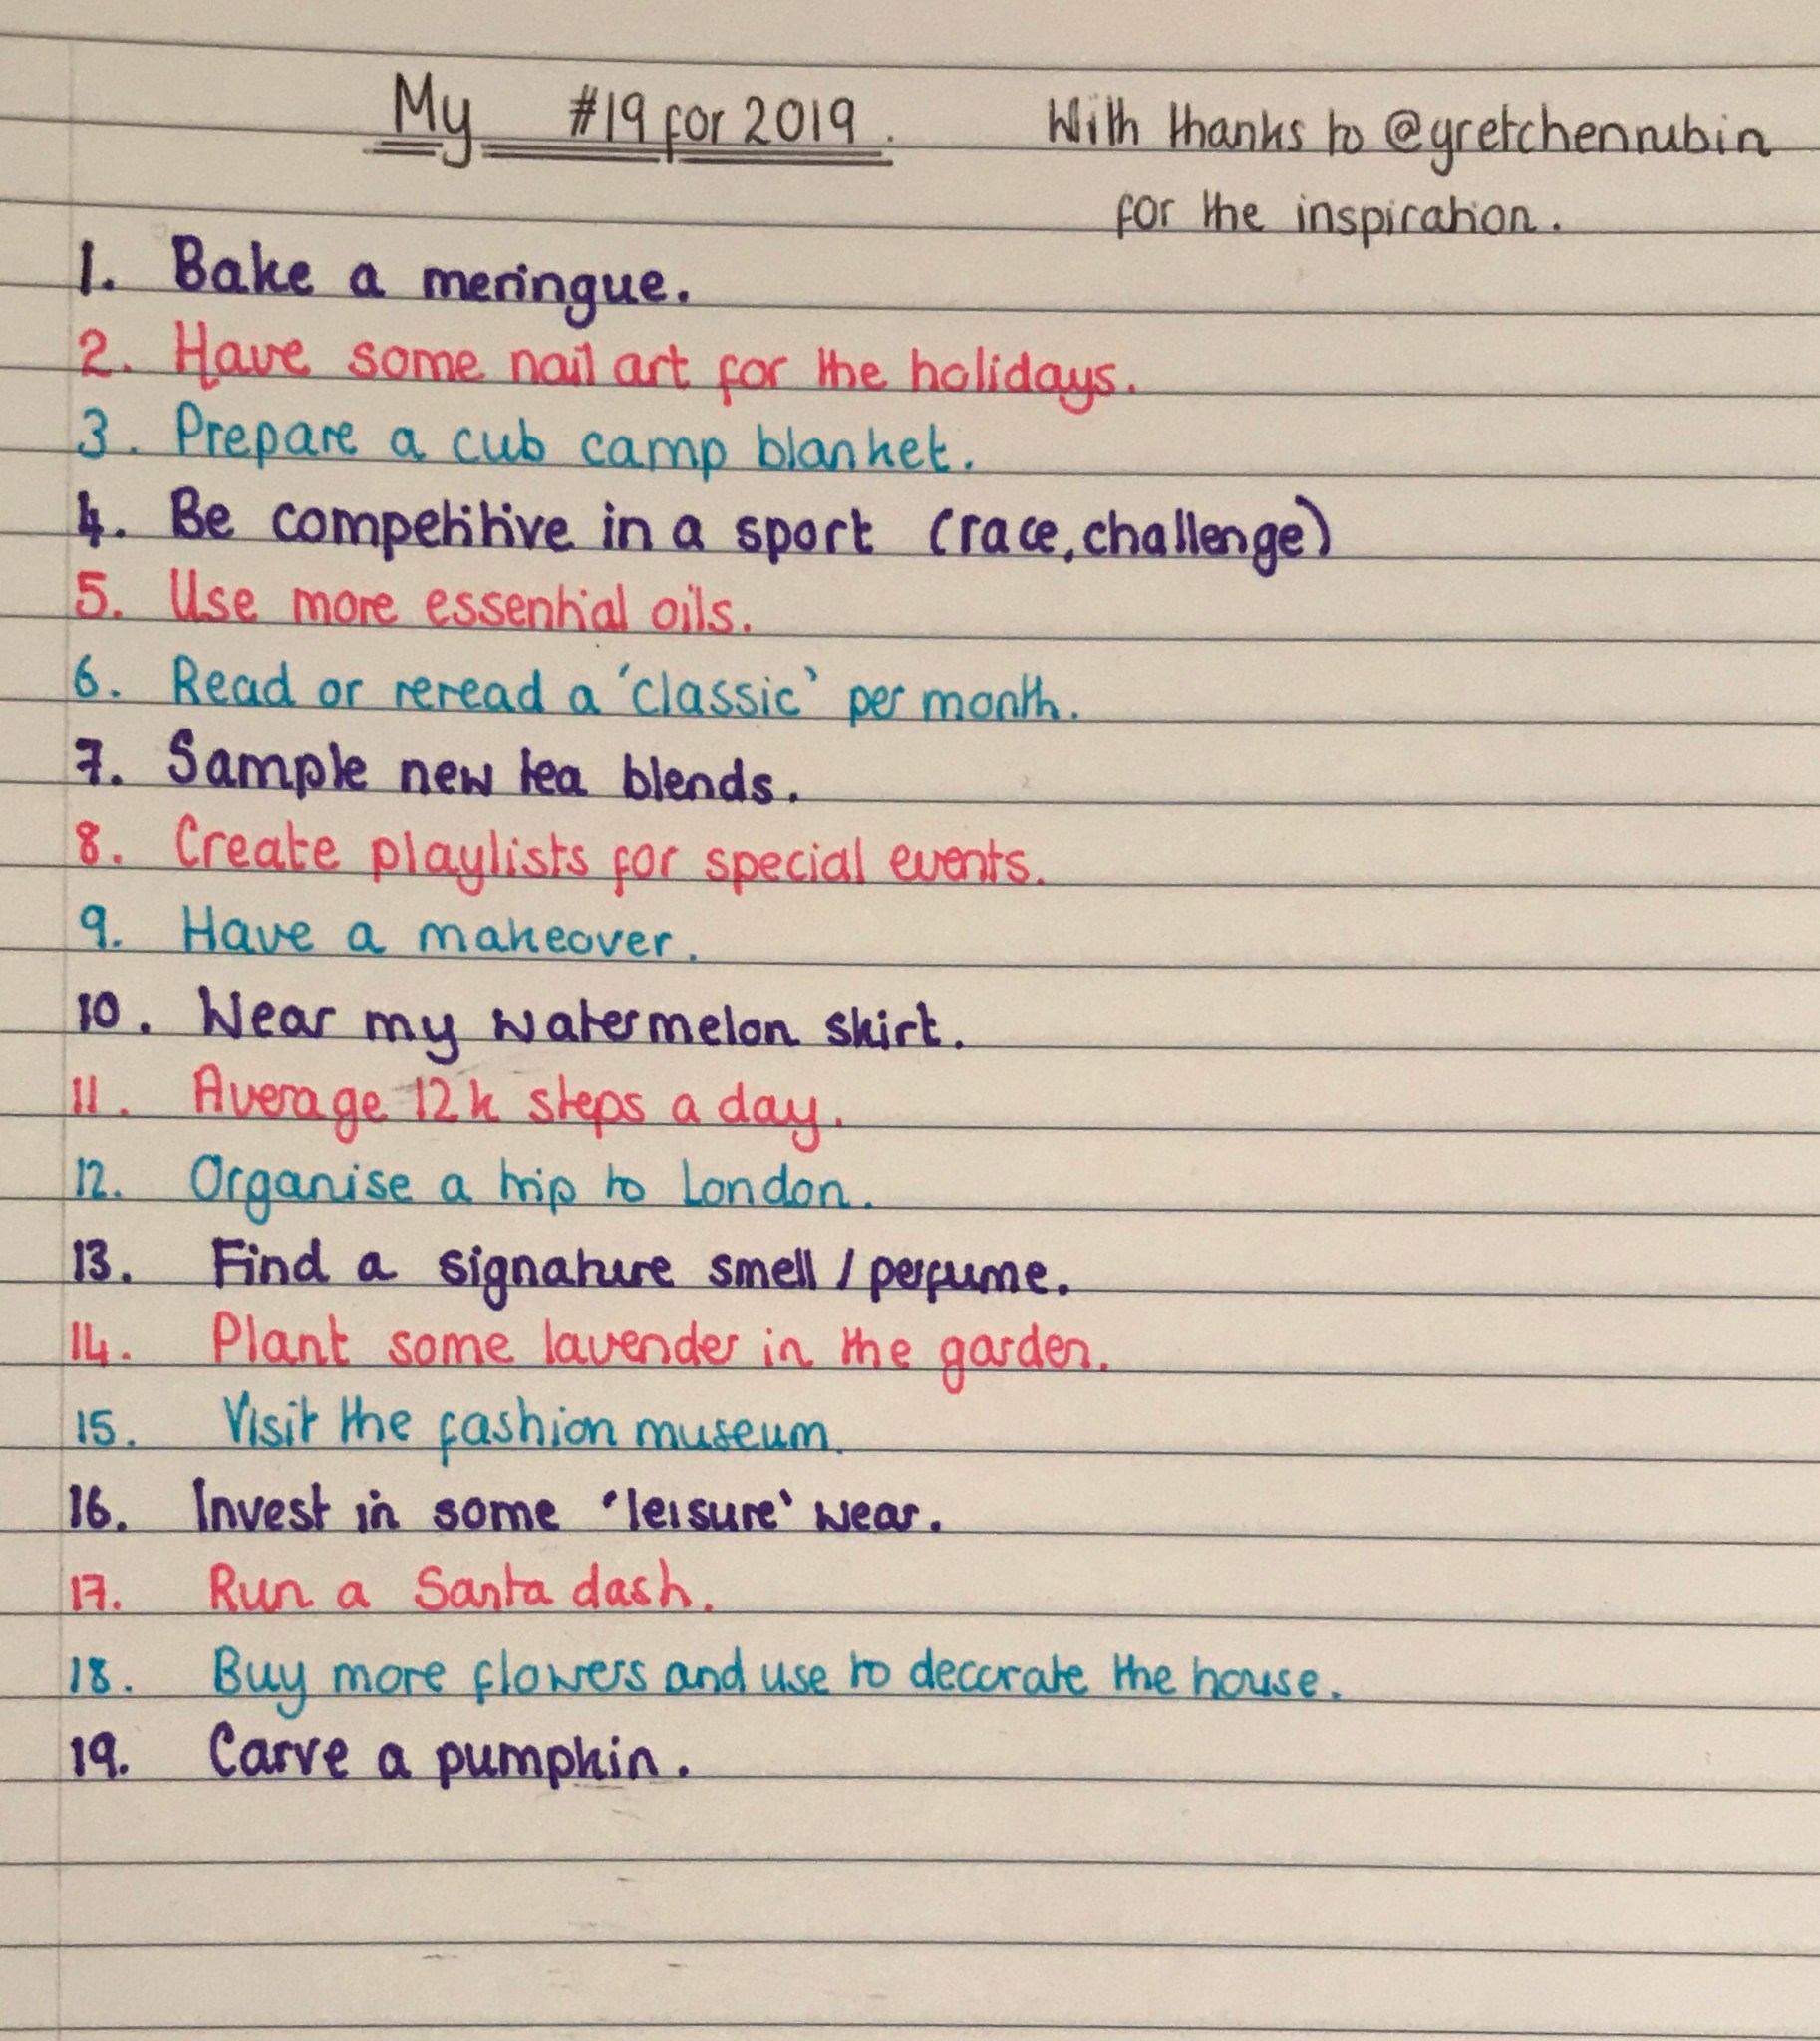 My #19 for 2019. With thanks to @gretchenrubin
for the inspiration.
1. Bake a meringue.
2. Have some nail art for the holidays.
3. Prepare a cub camp blanket.
4. Be competitive in a sport (race, challenge)
5. Use more essential oils.
6. Read or reread a 'classic' per month.
7. Sample new tea blends.
8. Create playlists for special events.
9. Have a makeover.
10. Wear my watermelon skirt.
11. Average 12k steps a day.
12. Organise a trip to London.
13. Find a signature smell / perfume.
14. Plant some lavender in the garden.
15. Visit the fashion museum.
16. Invest in some 'leisure' wear.
17. Run a Santa dash.
18. Buy more flowers and use to decorate the house.
19. Carve a pumpkin.